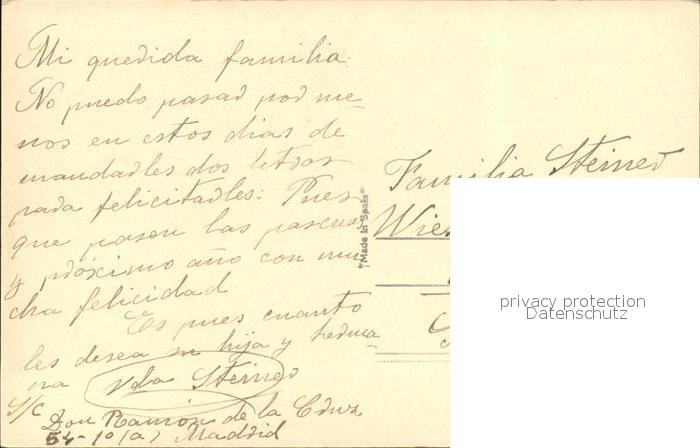 Mi querida familia:
No puedo pasar por me-
nos en estos dias de
mandarles dos letras
para felicitarles: Pues
que pasen las pascuas
y próximo año con mu-
cha felicidad
Es pues cuanto
les desea su hija y herma-
na Vda Steiner
S/C Don Ramón de la Cruz
54-1º(a) Madrid
"Made in Spain"
Familia Steiner
privacy protection
Datenschutz